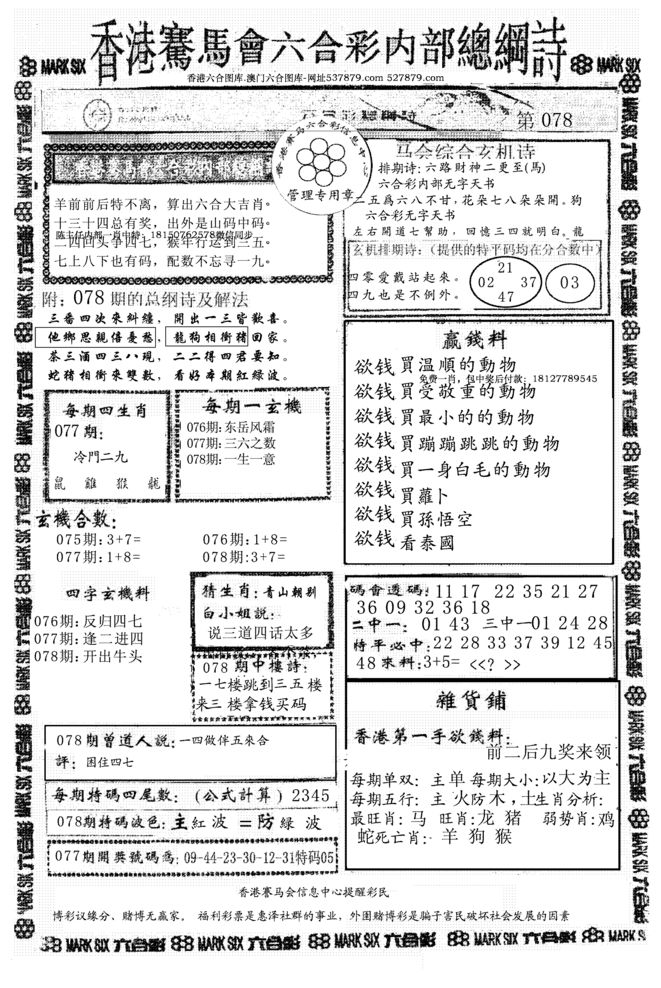 香港騫馬會六合彩内部總綱詩
MARK SIX
MARK SIX
香港六合图库.澳门六合图库-网址537879.com 527879.com
第 078
香港赛马六合彩信息中心
管理专用章
羊前前后特不离，算出六合大吉肖。
十三十四总有奖，出外是山码中码。
二四回头争四七，猴年行运到三五。
陈主任内部一肖中特：18150762578微信同步
七上八下也有码，配数不忘寻一九。
马会综合玄机诗
排期诗:六路财神二更至(馬)
六合彩内部无字天书
二五爲六八不甘，花朵七八朵朵開。狗
六合彩无字天书
左右開道七幫助，回憶三四就明白。龍
玄机排期诗:（提供的特平码均在分合数中）
四零爱戴站起來。
四九也是不例外。
21
02 37
47
03
附：078期的总纲诗及解法
三番四次來糾纏，開出一三皆歡喜。
他鄉思親倍憂愁，龍狗相衝猪回家。
茶三酒四三八現，二二得四君要知。
蛇猪相衝來雙數，看好本期紅綠波。
每期四生肖
077期:
冷門二九
鼠 雞 猴 龍
每期一玄機
076期:东岳风霜
077期:三六之数
078期:一生一意
赢錢料
欲钱買温順的動物
免费一肖，包中奖后付款：18127789545
欲钱買受敬重的動物
欲钱買最小的的動物
欲钱買蹦蹦跳跳的動物
欲钱買一身白毛的動物
欲钱買蘿卜
欲钱買孫悟空
欲钱看泰國
玄機合數:
075期:3+7= 076期:1+8=
077期:1+8= 078期:3+7=
四字玄機料
076期:反归四七
077期:逢二进四
078期:开出牛头
猜生肖:青山朝别
白小姐説:
说三道四话太多
078 期中樓詩:
一七楼跳到三五楼
来三楼拿钱买码
碼會透碼:11 17 22 35 21 27
36 09 32 36 18
二中一: 01 43 三中一01 24 28
特平必中:22 28 33 37 39 12 45
48來料:3+5= <<? >>
078期曾道人説:一四做伴五來合
評: 困住四七
每期特碼四尾數: (公式計算) 2345
078期特碼波色:主紅波 =防綠波
077期開獎號碼爲:09-44-23-30-12-31特码05
雜貨鋪
香港第一手欲錢料:
前二后九奖来领
每期单双: 主单 每期大小:以大为主
每期五行: 主 火防木，土生肖分析:
最旺肖: 马 旺肖:龙 猪 弱势肖:鸡
蛇死亡肖: 羊 狗 猴
香港赛马会信息中心提醒彩民
博彩议缘分、赌博无赢家， 福利彩票是惠泽社群的事业，外围赌博彩是骗子害民破坏社会发展的因素
MARK SIX 六合彩 MARK SIX 六合彩 MARK SIX 六合彩 MARK SIX 六合彩 MARK S